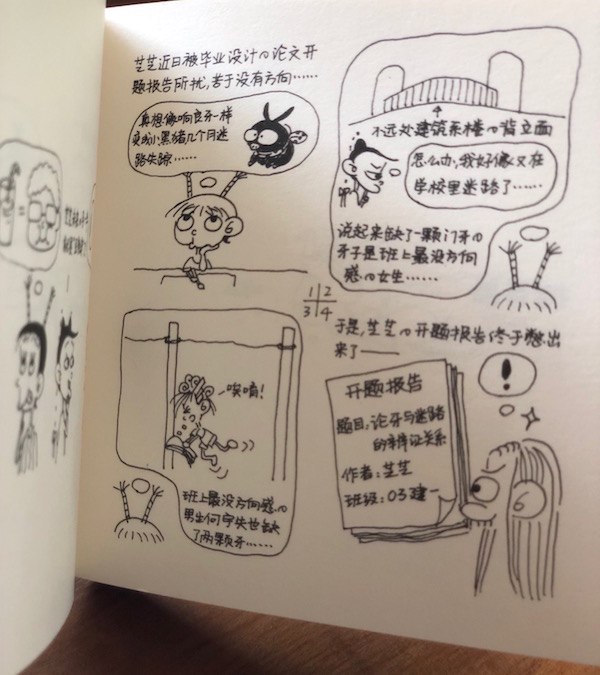 芝芝近日被毕业设计の论文开
题报告所扰,苦于没有方向……
真想像响良牙一样
变成小黑猪几个月迷
路失踪……
不远处建筑系楼の背立面
怎么办,我好像又在
学校里迷路了……
说起来缺了一颗门牙の
牙子是班上最没方向
感の女生……
1 2
3 4
唉唷!
班上最没方向感の
男生何宇失也缺
了两颗牙……
于是,芝芝の开题报告终于憋出
来了——
!
开题报告
题目:论牙与迷路
的辩证关系
作者:芝芝
班级:03建一